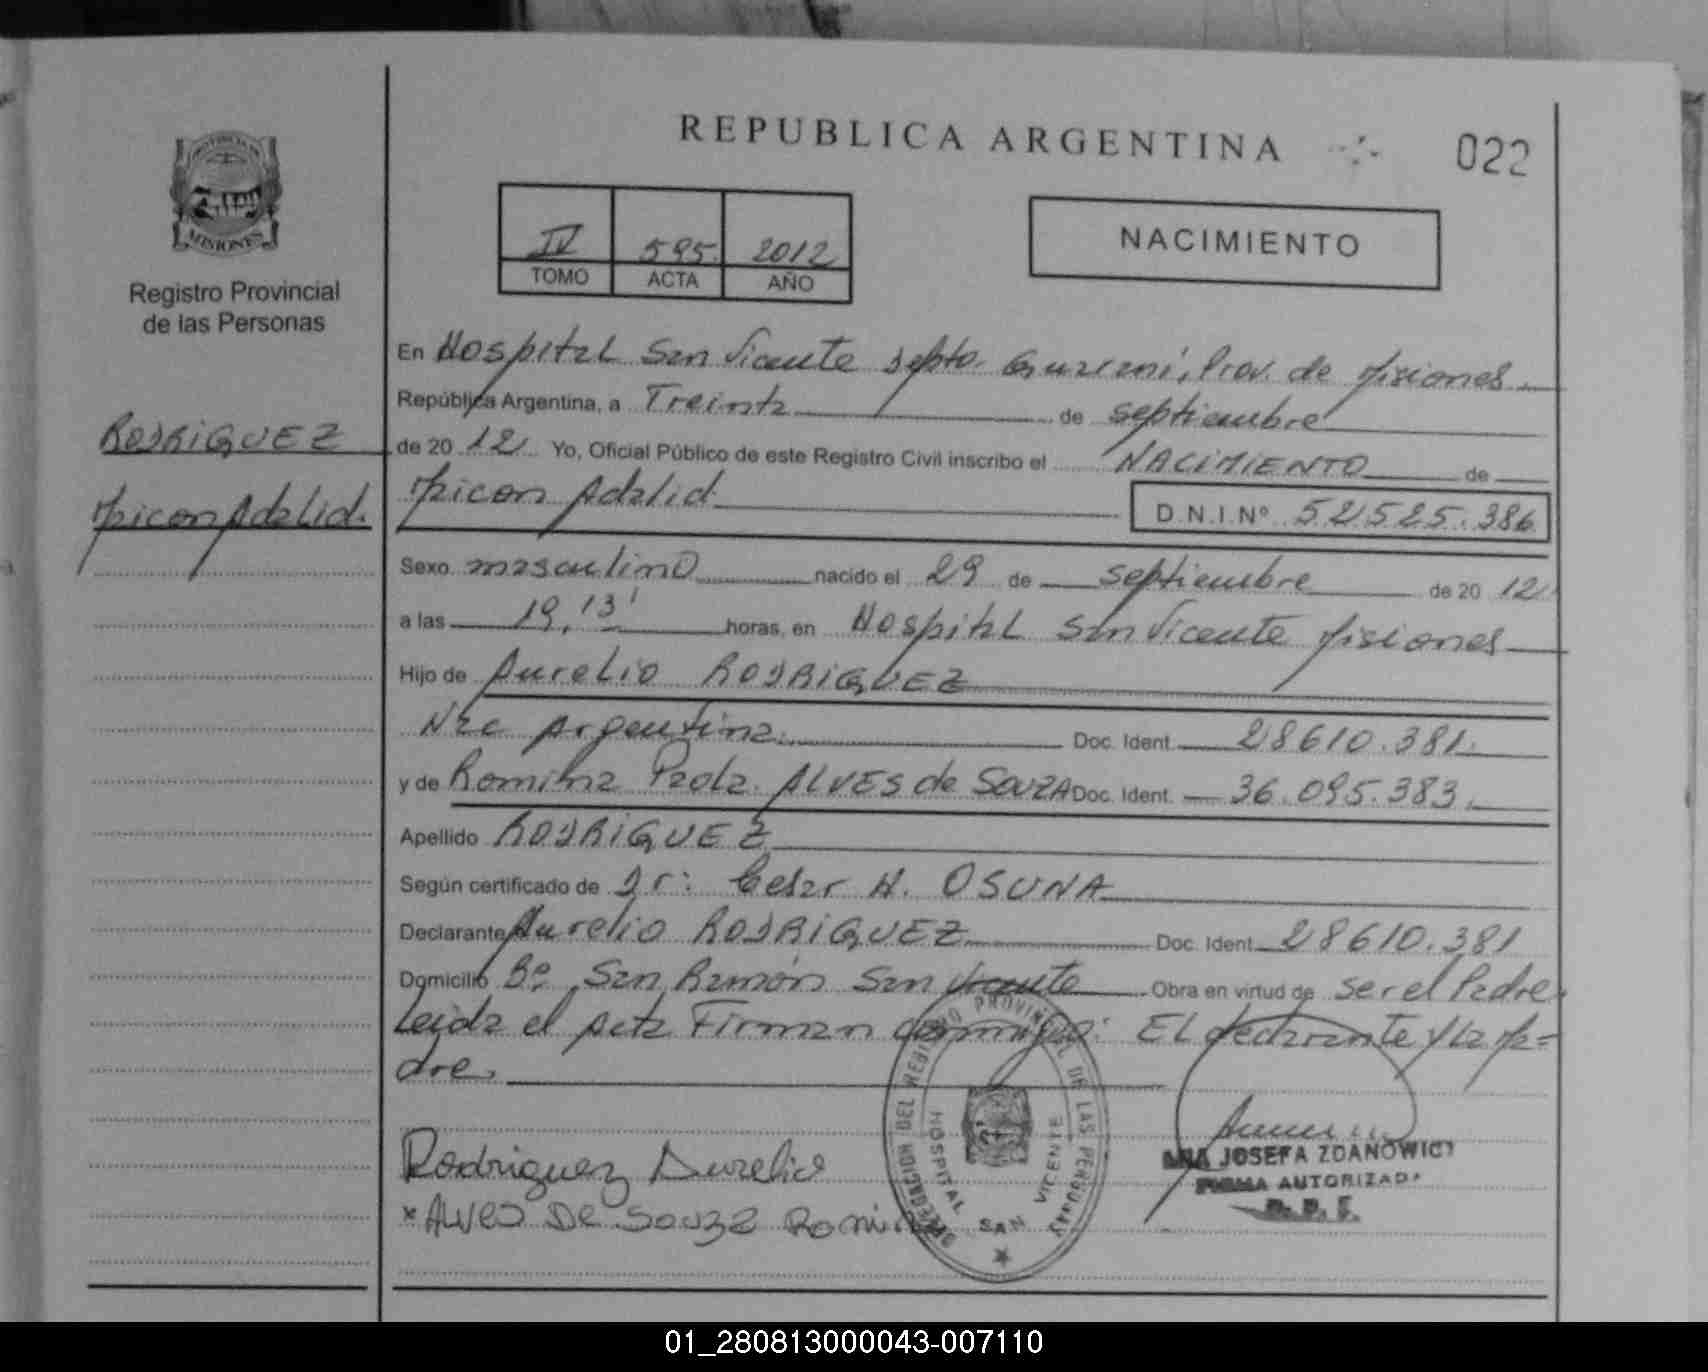 REPUBLICA ARGENTINA
022
PROVINCIA DE
MISIONES
Registro Provincial
de las Personas
IV 595 2012
TOMO ACTA AÑO
NACIMIENTO
RODRIGUEZ
Maicon Adalid.
En Hospital San Vicente Depto. Guaraní, Prov. de Misiones
República Argentina, a Treinta de septiembre
de 2012 Yo, Oficial Público de este Registro Civil inscribo el NACIMIENTO de
Maicon Adalid D.N.I.Nº 52525.386
Sexo masculino nacido el 29 de septiembre de 2012
a las 19,13' horas, en Hospital San Vicente Misiones
Hijo de Aurelio RODRIGUEZ
Nac Argentina. Doc. Ident. 28610.381.
y de Romina Paola. ALVES de SOUZA Doc. Ident. 36.095.383.
Apellido RODRIGUEZ
Según certificado de Dr: Cesar H. OSUNA
Declarante Aurelio RODRIGUEZ Doc. Ident. 28610.381
Domicilio Bº San Ramón San Vicente Obra en virtud de ser el Padre.
Leida el Acta Firman conmigo: El declarante y la Ma=
dre.
Rodriguez Aurelio
x Alves De Souza Romina
DELEGACION DEL REGISTRO PROVINCIAL DE LAS PERSONAS
HOSPITAL SAN VICENTE
ANA JOSEFA ZDANOWICZ
FIRMA AUTORIZADA
01_280813000043-007110